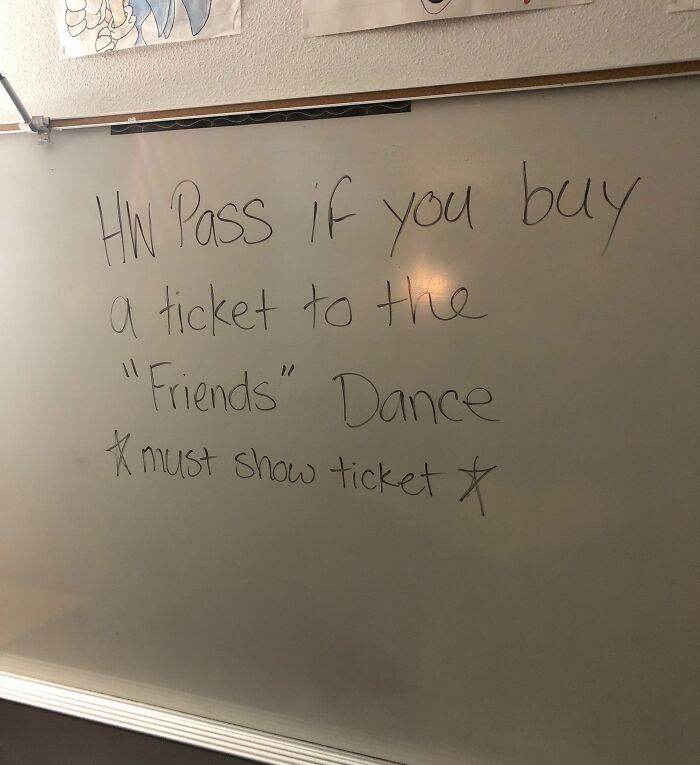 HW Pass if you buy
a ticket to the
"Friends" Dance
☆ must show ticket ☆